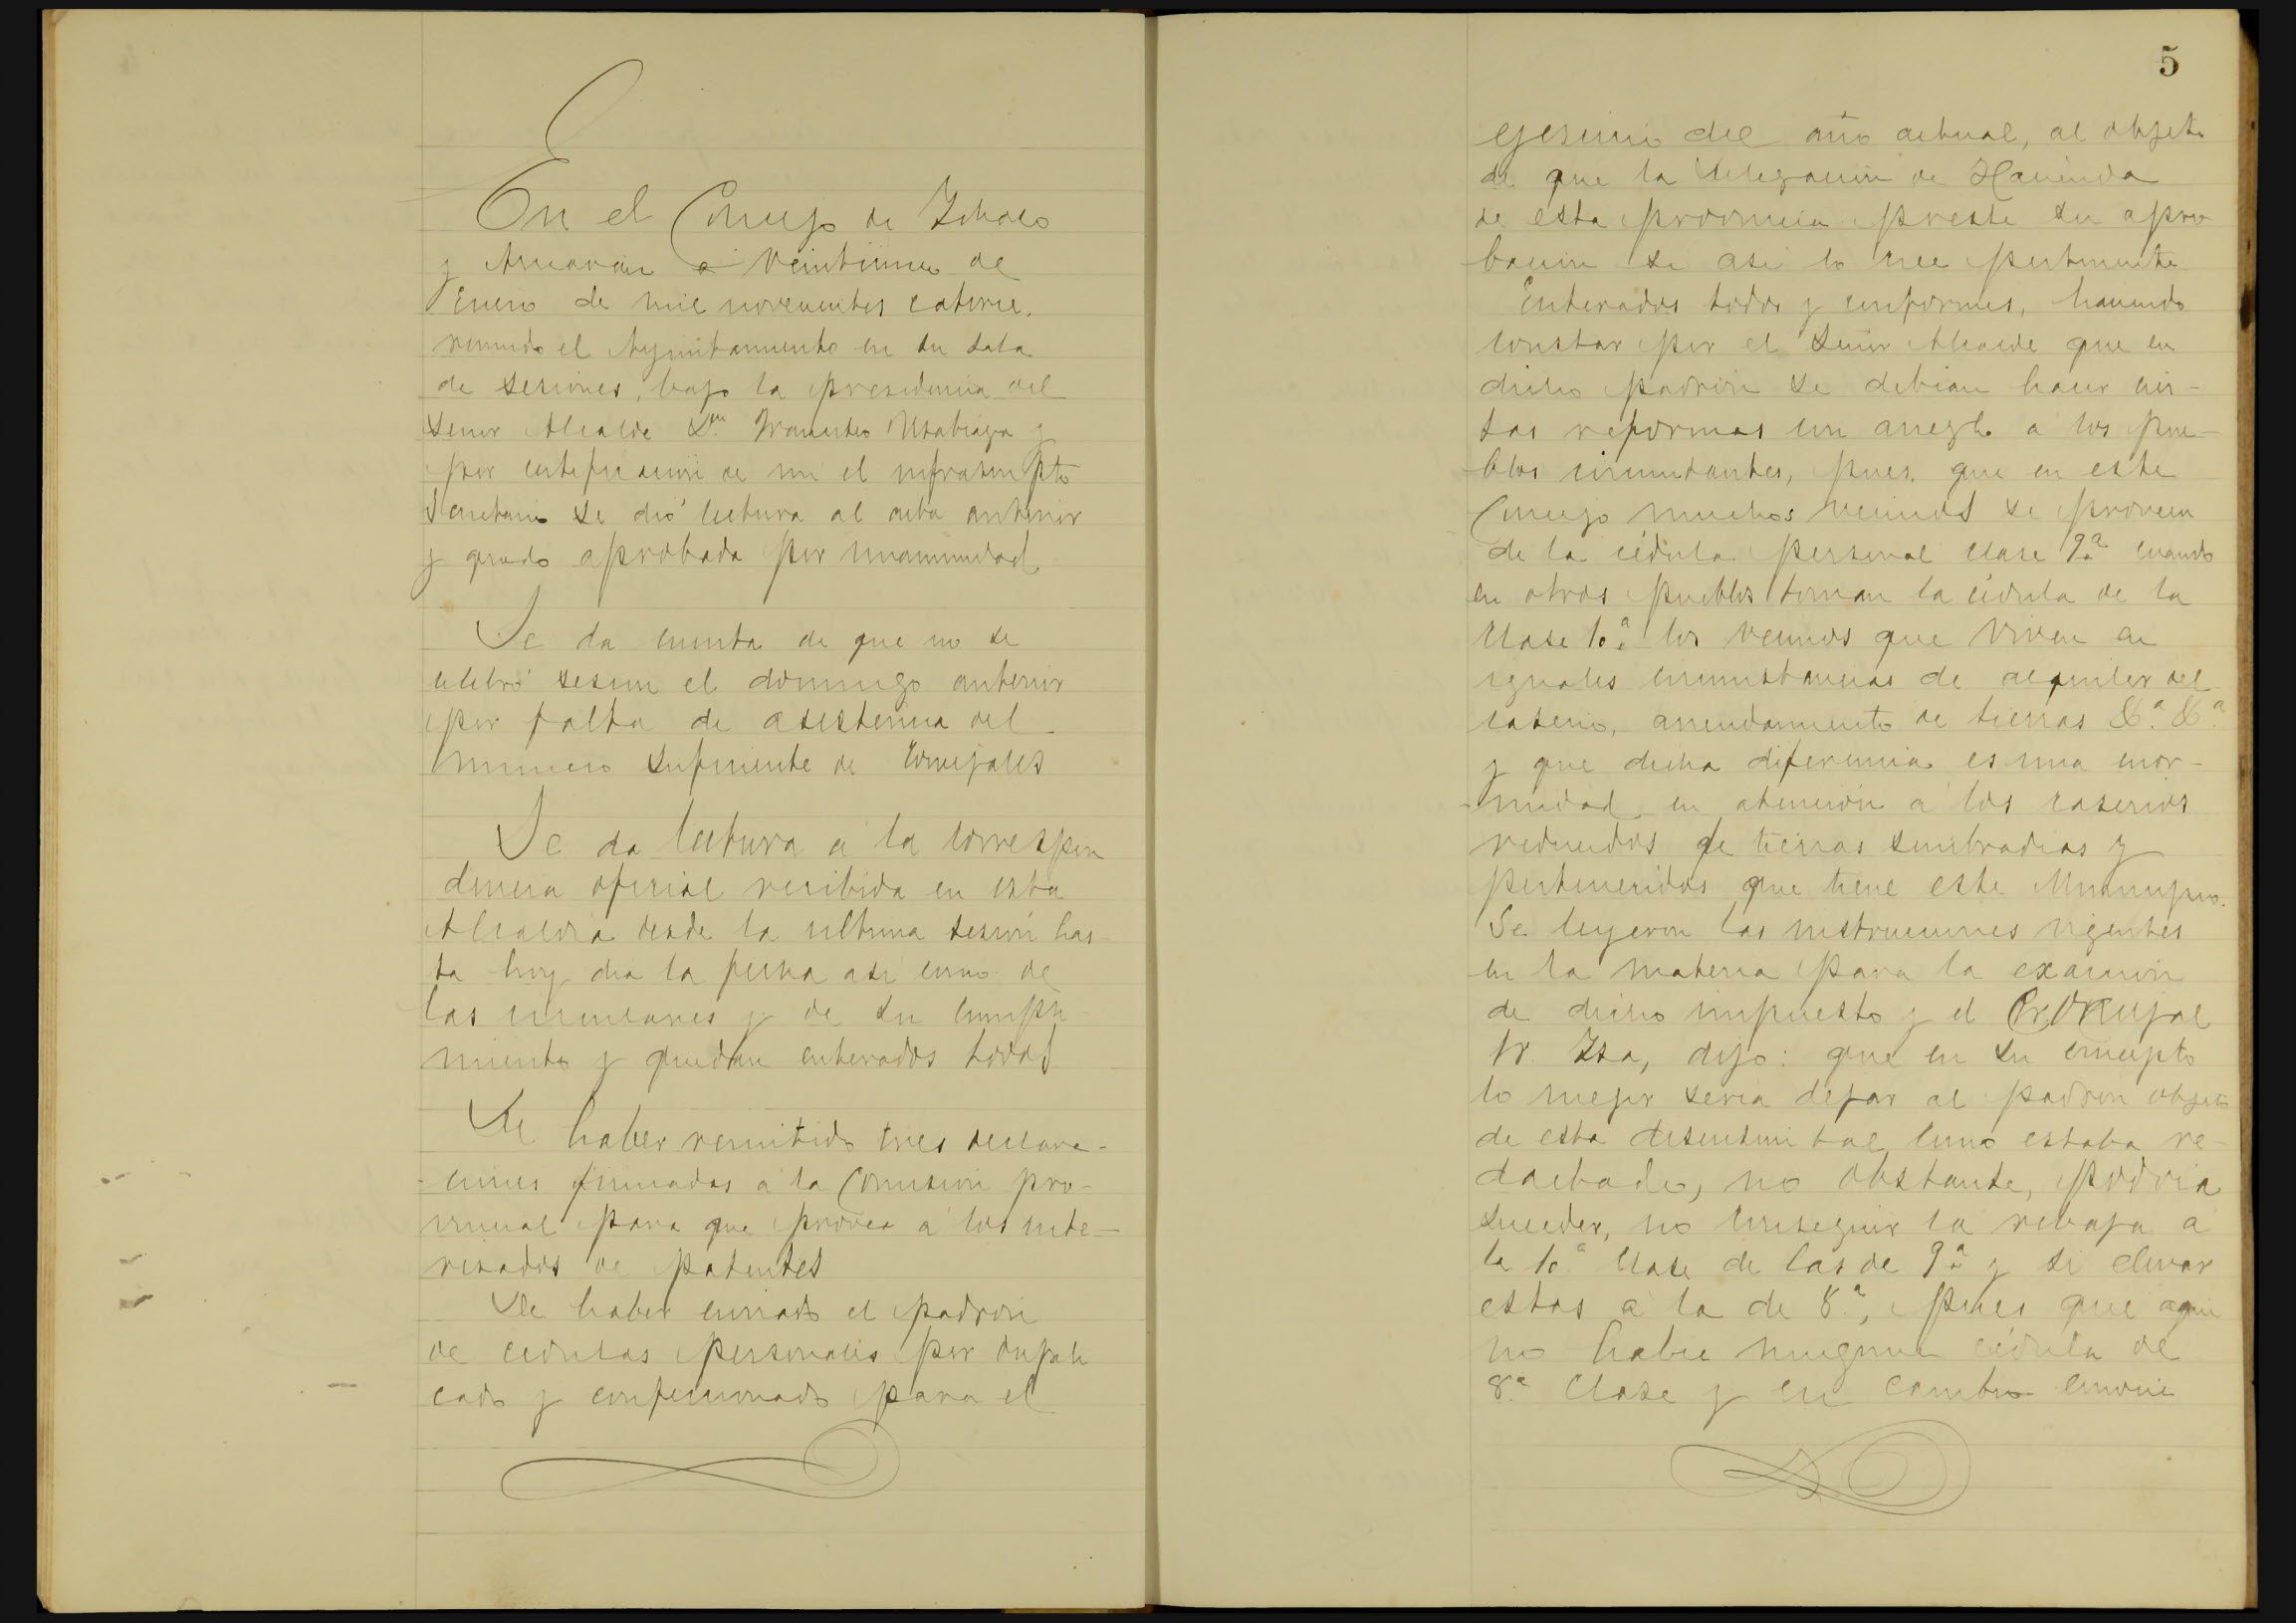 En el Concejo de Ichaso
y Arriarán a veinticinco de
Enero de mil novecientos catorce.
reunido el Ayuntamiento en su sala
de sesiones, bajo la presidencia del
Señor Alcalde Dn. Francisco Usabiaga y
por certificacion de mi el infrascripto
Secretario se dió lectura al acta anterior
y quedo aprobada por unanimidad.
Se da cuenta de que no se
celebró sesion el domingo anterior
por falta de asistencia del
numero suficiente de Concejales
Se da lectura a la correspon
dencia oficial recibida en esta
Alcaldia desde la ultima sesión has-
ta hoy dia la fecha asi como de
las circulares y de su cumpli-
miento y quedan enterados todos
De haber remitido tres declara-
-ciones firmadas a la Comision pro-
vincial para que provea a los inte-
resados de patentes
De haber enviado el padron
de cedulas personales por dupli
cado y confeccionado para el
5
ejercicio del año actual, al objeto
de que la Delegación de Hacienda
de esta provincia preste su apro
-bacion si asi lo cree pertinente
Enterados todos y conformes, haciendo
constar por el Señor Alcalde que en
dicho padrón se debian hacer cier-
tas reformas con arreglo a los pue-
-blos circundantes, pues, que en este
Concejo muchos vecinos se proveen
de la cédula personal clase 9ª cuando
en otros pueblos toman la cédula de la
clase 10ª los vecinos que viven en
iguales circunstancias de alquiler del
caserio, arrendamiento de tierras &ª. &ª.
y que dicha diferencia es una enor-
-midad en atención a los caserios
reducidos de tierras sembradias y
pertenecidos que tiene este Municipio.
Se leyeron las instrucciones vigentes
en la materia para la exacción
de dicho impuesto y el Concejal
Sr. Isa, dijo: que en su concepto
lo mejor seria dejar al padron objeto
de esta discusion tal como estaba re-
dactado, no obstante, podria
suceder, no conseguir la rebaja a
la 10ª clase de las de 9ª y si elevar
estas a la de 8ª, pues que aqui
no habia ninguna cédula de
8ª clase y en cambio